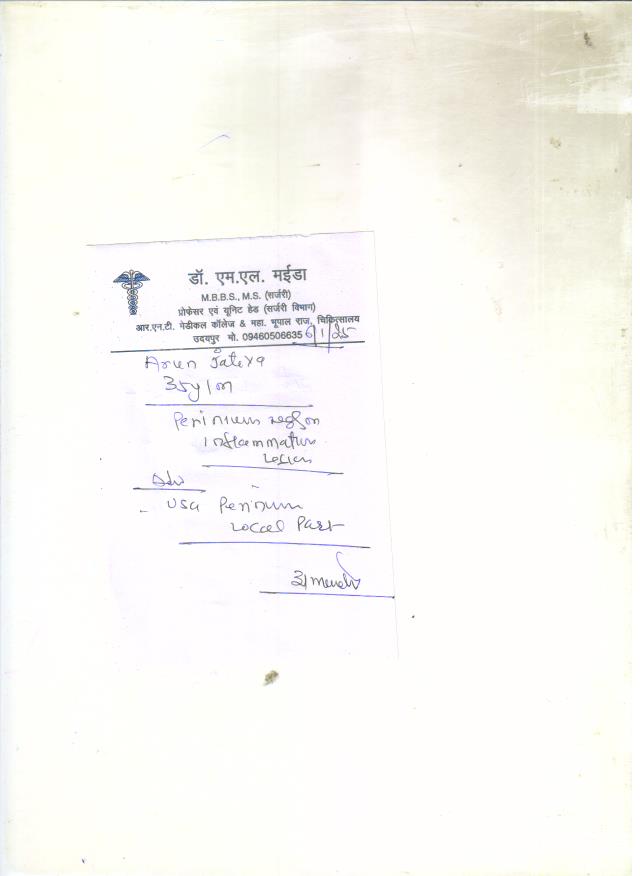 डॉ. एम.एल. मईडा
M.B.B.S., M.S. (सर्जरी)
प्रोफेसर एवं यूनिट हेड (सर्जरी विभाग)
आर.एन.टी. मेडीकल कॉलेज & महा. भूपाल राज. चिकित्सालय
उदयपुर मो. 09460506635 6/1/25
Arun
35y/m
Perinium region
Inflammatory
Lesion
Adv
- USG Perinium
Local Part